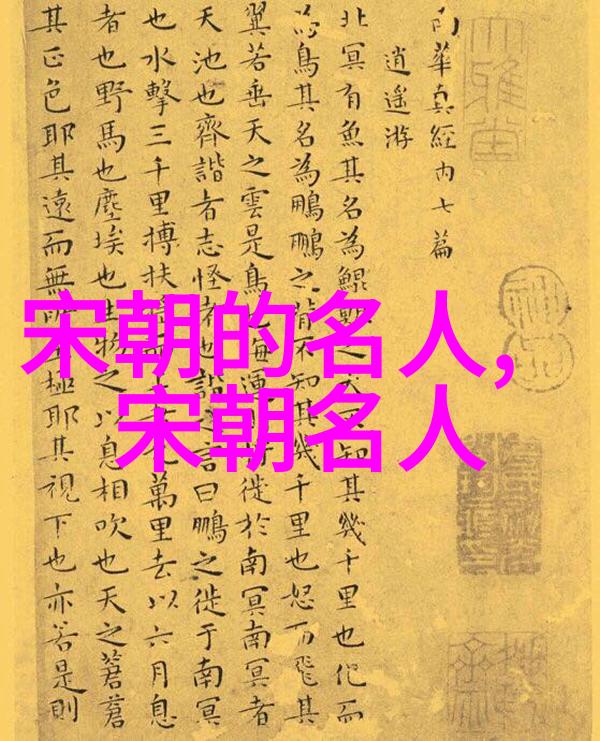 宋朝的名人,
宋朝名人
南華真經内七篇
逍遙游
北冥有魚其名為鯤鯤之大不知其幾千里也化而
為鳥其名為鵬鵬之背不知其幾千里也怒而飛其
翼若垂天之雲是鳥也海運將徙於南冥南冥者
天池也齊諧者志怪者也諧之言曰鵬之徙于南冥
也水擊三千里搏扶搖而上者九萬里去以六月息
者也野馬也塵埃也生物之以息相吹也天之蒼蒼
其正色耶其遠而無所至極耶其視下也亦若是則